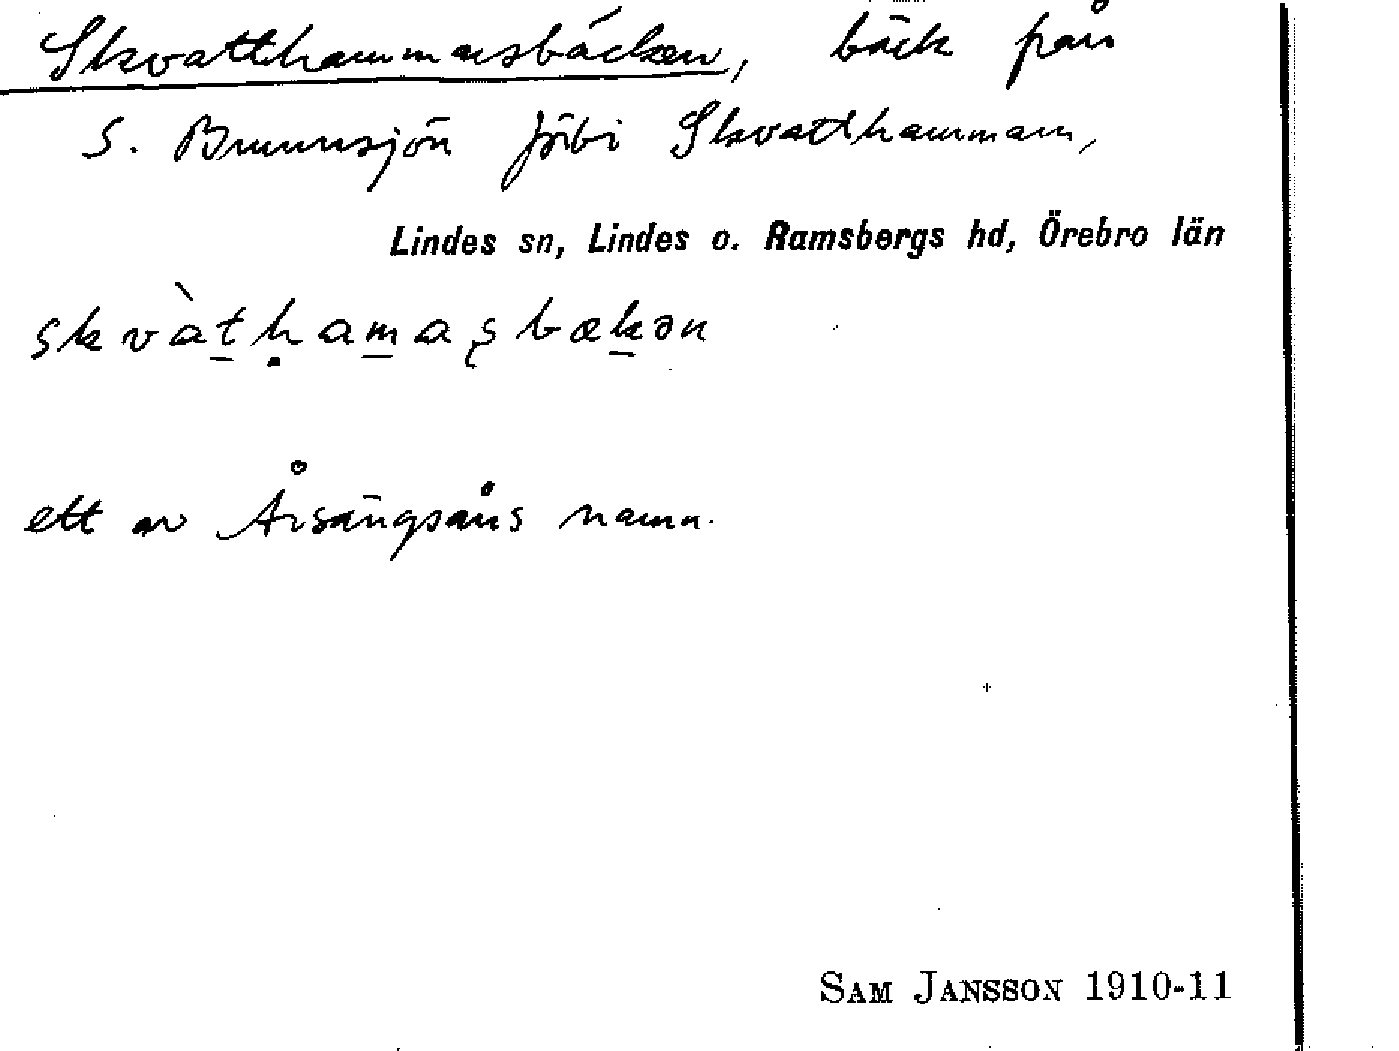 Skvatthammarsbäcken, bäck från
S. Brunnsjön förbi Skvatthammarn,
Lindes sn, Lindes o. Ramsbergs hd, Örebro län
skvàt̲ḥam̲aʂbæk̲ən
ett av Årsängsåns namn.
SAM JANSSON 1910-11